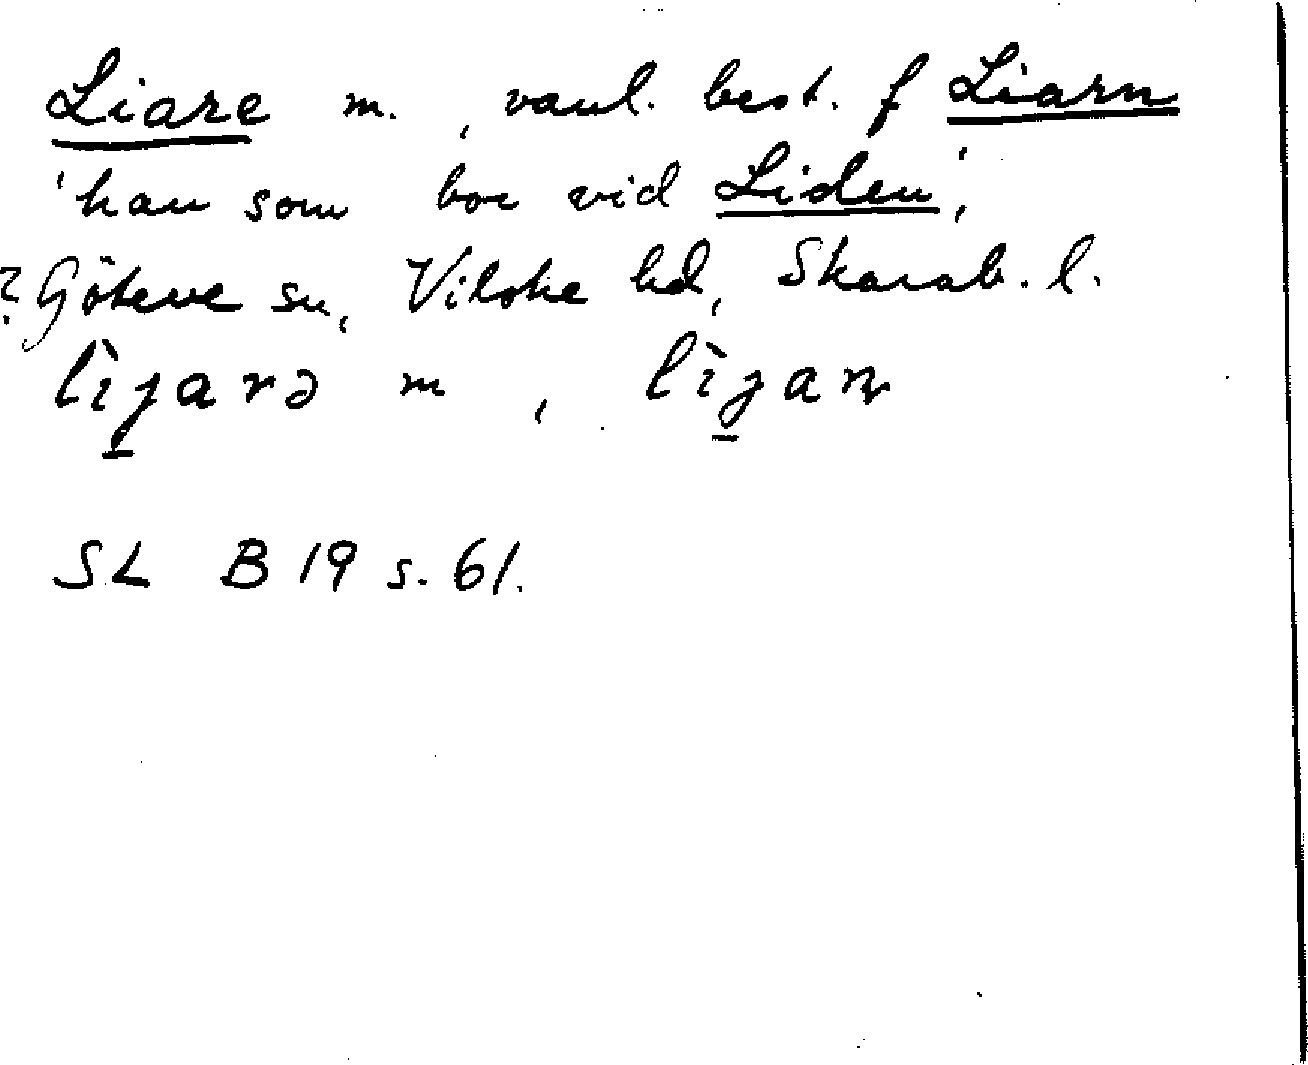 Liare m., vanl. best. f Liarn
'han som bor vid Liden',
? Göteve sn, Vilske hd, Skarab. l.
lìȷarə m, lìȷaɳ
SL B 19 s. 61.